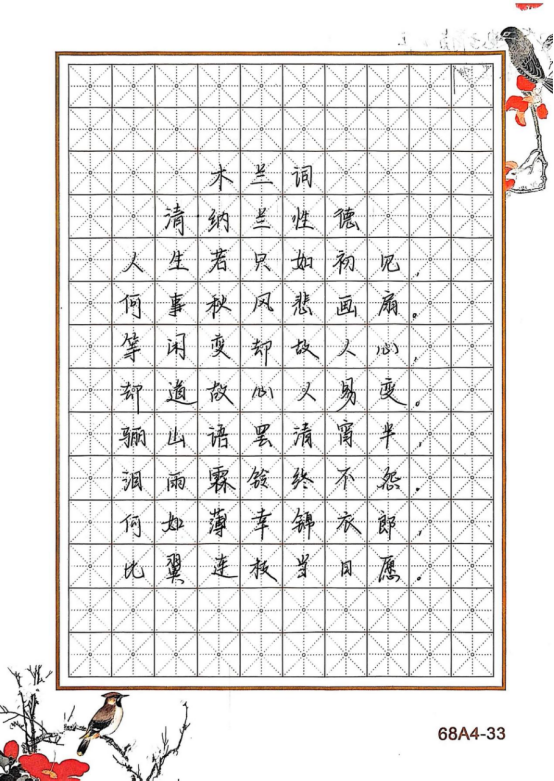 木兰词
清纳兰性德
人生若只如初见，
何事秋风悲画扇。
等闲变却故人心，
却道故心人易变。
骊山语罢清宵半，
泪雨霖铃终不怨。
何如薄幸锦衣郎，
比翼连枝当日愿。
68A4-33